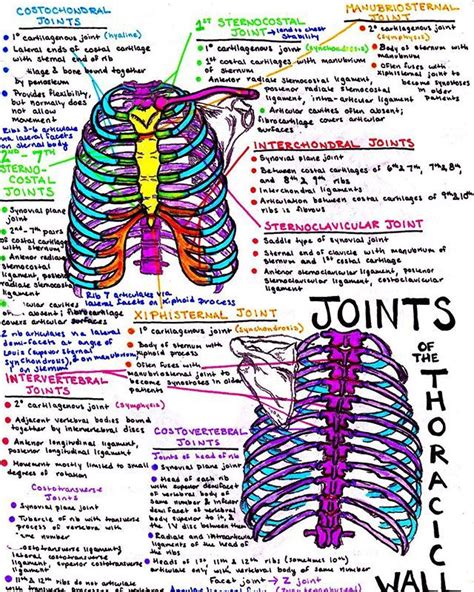 COSTOCHONDRAL
JOINTS
1° cartilagenous joint (hyaline)
Lateral ends of costal cartilage
with sternal end of rib
tilage & bone bound together
by periosteum
Provides flexibility
but normally does
not allow
movement
Ribs 3-6 articulate
via lateral facets
on sternal body
2ND - 7TH
STERNO-
COSTAL
JOINTS
Synovial plane
joint
2nd - 7th pairs
of costal cartilage
with sternum
Anterior radiate
sternocostal
ligament, posterior
radiate sternocostal
ligament
cular cavities
often absent; fibrocartilage
covers articular surfaces
2 rib articulates via lateral
demi-facets at angle of
Louis (superior sternal
synchondrosis), & on manubrium,
on sternum
1ST STERNOCOSTAL
JOINT → lends to chest
stability
1° cartilagenous joint (synchondrosis)
1st costal cartilages with manubrium
of sternum
Anterior radiate sternocostal ligament,
posterior radiate sternocostal
ligament, intra-articular ligament
Articular cavities often absent;
fibrocartilage covers articular
surfaces
MANUBRIOSTERNAL
JOINT
2° cartilagenous joint
(symphysis)
Body of sternum with
manubrium
Often fuses with
xiphisternal joint to
become synostosis
in older
patients
INTERCHONDRAL JOINTS
Synovial plane joint
Between costal cartilages of 6th & 7th, 7th & 8th,
and 8th & 9th ribs
Interchondral ligaments
Articulation between costal cartilages of 9th & 10th
ribs is fibrous
STERNOCLAVICULAR JOINT
Saddle type of synovial joint
Sternal end of clavicle with manubrium of
sternum and 1st costal cartilage
Anterior sternoclavicular ligament, posterior
sternoclavicular ligament, costoclavicular
ligament
Rib 7 articulates via
lateral facets & xiphoid process
XIPHISTERNAL JOINT
1° cartilagenous joint (synchondrosis)
Body of sternum with
xiphoid process
Often fuses with
manubriosternal joint to
become synostosis in older
patients
JOINTS
OF
THE
THORACIC
WALL
INTERVERTEBRAL
JOINTS
2° cartilagenous joint (symphysis)
Adjacent vertebral bodies bound
together by intervertebral discs
Anterior longitudinal ligament,
posterior longitudinal ligament
Movement mostly limited to small
degrees of rotation
Costotransverse
Joints
Synovial plane joint
Tubercle of rib with transverse
process of vertebra with
same number
costotransverse ligament,
lateral costotransverse
ligament, superior costotransverse
ligament
11th & 12th ribs do not articulate
with transverse process of
COSTOVERTEBRAL
JOINTS
Joints of head of rib
Synovial plane joint
Head of each
rib with superior demifacet
of vertebral body of
same number & inferior
demifacet of vertebral
body superior to it, &
the IV disc between them
Radiate and intraarticular
ligaments of the head of
the ribs
Heads of 1st, 11th & 12th ribs (sometimes 10th)
articulate with vertebral body of same number
Facet joint → Z joint